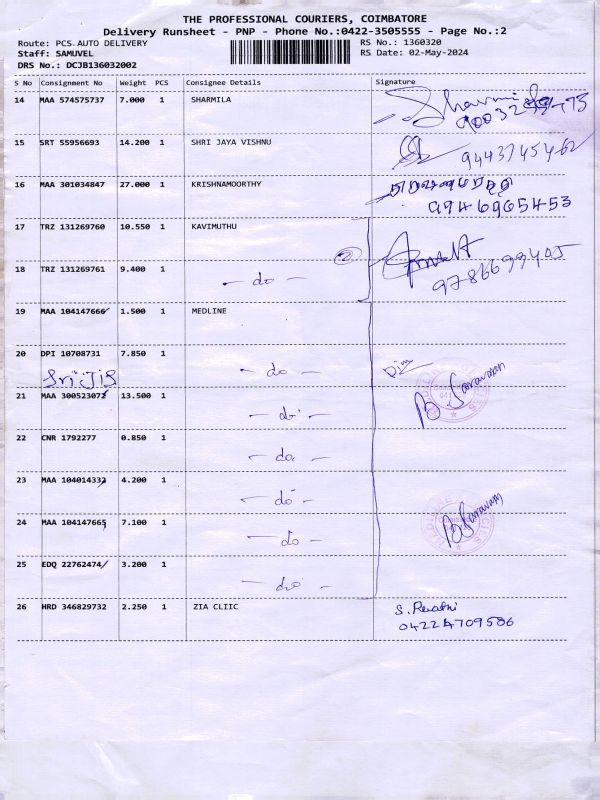 THE PROFESSIONAL COURIERS, COIMBATORE
Delivery Runsheet - PNP - Phone No.:0422-3505555 - Page No.:2
Route: PCS AUTO DELIVERY RS No.: 1360320
Staff: SAMUVEL RS Date: 02-May-2024
DRS No.: DCJB136032002
S No Consignment No Weight PCS Consignee Details Signature
14 MAA 574575737 7.000 1 SHARMILA
15 SRT 55956693 14.200 1 SHRI JAYA VISHNU
9443745462
16 MAA 301034847 27.000 1 KRISHNAMOORTHY
9746965453
17 TRZ 131269760 10.550 1 KAVIMUTHU
2
18 TRZ 131269761 9.400 1
- do - 9786699405
19 MAA 104147666 1.500 1 MEDLINE
20 DPI 10708731 7.850 1
- do -
Sri JIS
B. Saravanan
21 MAA 300523072 13.500 1
- do -
22 CNR 1792277 0.850 1
- do -
23 MAA 104014332 4.200 1
- do -
24 MAA 104147665 7.100 1 B. Saravanan
- do -
25 EDQ 22762474 3.200 1
- do -
26 HRD 346829732 2.250 1 ZIA CLIIC S. Revathi
04224709586